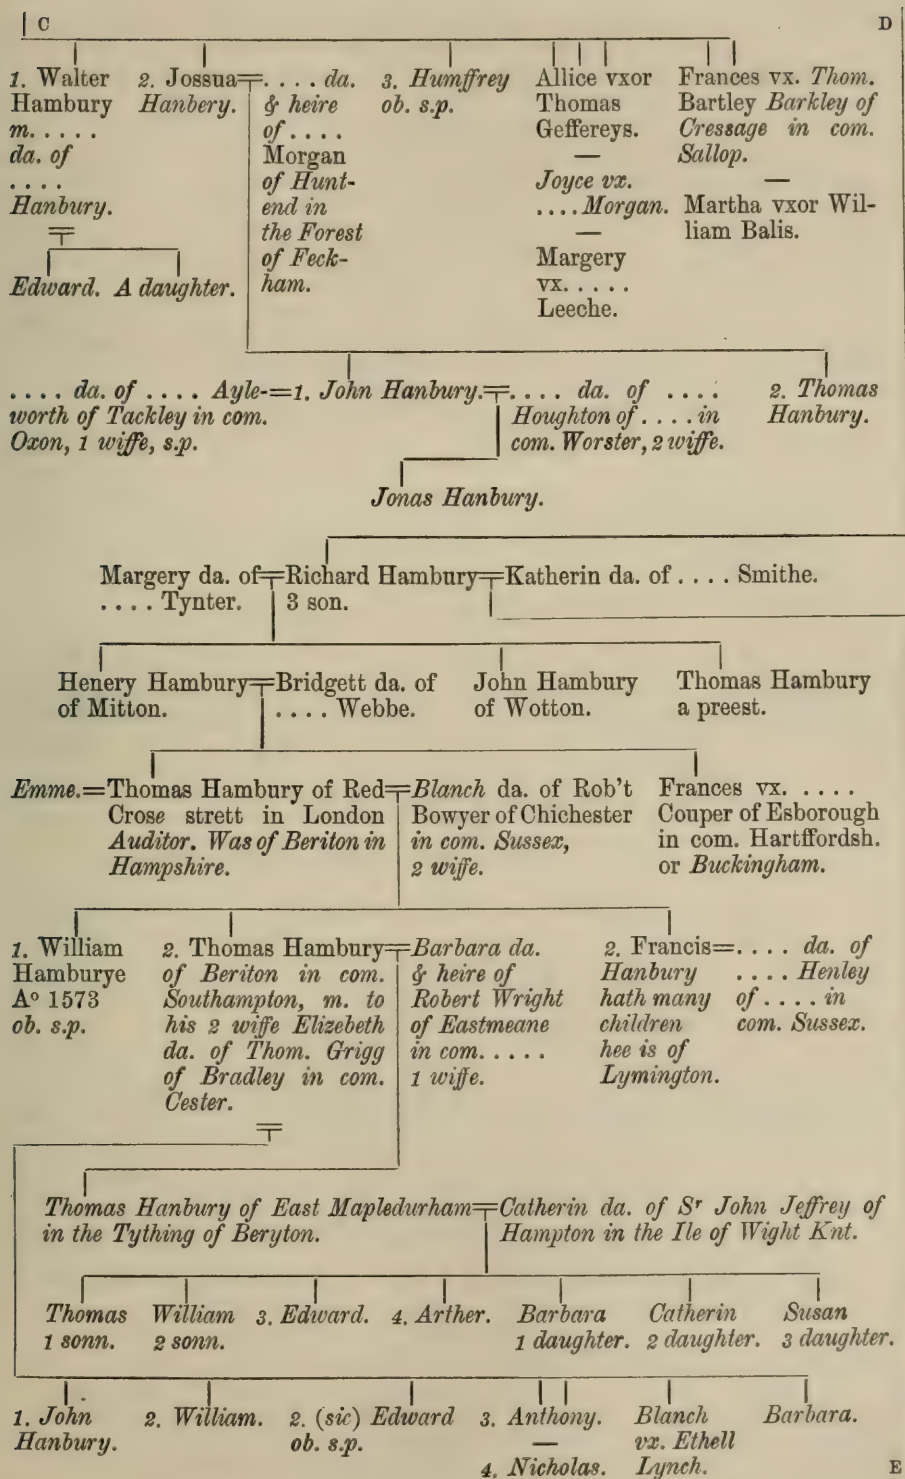 C
D
1. Walter
Hambury
m. . . . .
da. of
. . . .
Hanbury.
2. Jossua
Hanbery.
. . . . da.
& heire
of . . . .
Morgan
of Hunt-
end in
the Forest
of Feck-
ham.
3. Humffrey
ob. s.p.
Allice vxor
Thomas
Geffereys.
—
Joyce vx.
. . . . Morgan.
—
Margery
vx. . . . .
Leeche.
Frances vx. Thom.
Bartley Barkley of
Cressage in com.
Sallop.
—
Martha vxor Wil-
liam Balis.
Edward. A daughter.
. . . . da. of . . . . Ayle-
worth of Tackley in com.
Oxon, 1 wiffe, s.p.
1. John Hanbury.
. . . . da. of . . . .
Houghton of . . . . in
com. Worster, 2 wiffe.
2. Thomas
Hanbury.
Jonas Hanbury.
Margery da. of
. . . . Tynter.
Richard Hambury
3 son.
Katherin da. of . . . . Smithe.
Henery Hambury
of Mitton.
Bridgett da. of
. . . . Webbe.
John Hambury
of Wotton.
Thomas Hambury
a preest.
Emme.
Thomas Hambury of Red
Crose strett in London
Auditor. Was of Beriton in
Hampshire.
Blanch da. of Rob't
Bowyer of Chichester
in com. Sussex,
2 wiffe.
Frances vx. . . . .
Couper of Esborough
in com. Hartffordsh.
or Buckingham.
1. William
Hamburye
Aº 1573
ob. s.p.
2. Thomas Hambury
of Beriton in com.
Southampton, m. to
his 2 wiffe Elizebeth
da. of Thom. Grigg
of Bradley in com.
Cester.
Barbara da.
& heire of
Robert Wright
of Eastmeane
in com. . . . .
1 wiffe.
2. Francis
Hanbury
hath many
children
hee is of
Lymington.
. . . . da. of
. . . . Henley
of . . . . in
com. Sussex.
Thomas Hanbury of East Mapledurham
in the Tything of Beryton.
Catherin da. of Sʳ John Jeffrey of
Hampton in the Ile of Wight Knt.
Thomas
1 sonn.
William
2 sonn.
3. Edward.
4. Arther.
Barbara
1 daughter.
Catherin
2 daughter.
Susan
3 daughter.
1. John
Hanbury.
2. William.
2. (sic) Edward
ob. s.p.
3. Anthony.
—
4. Nicholas.
Blanch
vx. Ethell
Lynch.
Barbara.
E